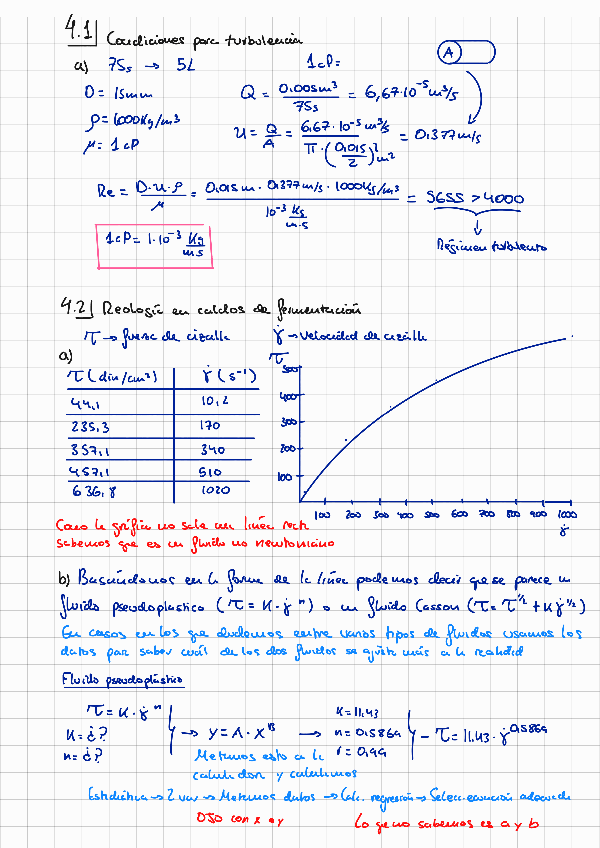 4.1 Condiciones para turbulencia
a) 75s → 5L
1cP=
A
D = 15mm
ρ = 1000Kg/m3
μ = 1cP
Q = 0,005m3 / 75s = 6,67·10-5 m3/s
u = Q/A = 6,67·10-5 m3/s / π·(0,015/2)2 m2 = 0,377m/s
Re = D·u·ρ / μ = 0,015m·0,377m/s·1000Kg/m3 / 10-3 Kg/m·s = 5655 > 4000
1cP = 1·10-3 Kg/m·s
Régimen turbulento
4.2 Reología en caldos de fermentación
τ → fuerza de cizalla γ̇ → velocidad de cizalla
a)
τ (din/cm2) γ̇ (s-1)
44,1 10,2
235,3 170
357,1 340
457,1 510
636,8 1020
τ
500
400
300
200
100
100 200 300 400 500 600 700 800 900 1000
γ̇
Como la gráfica no sale una línea recta
sabemos que es un fluido no newtoniano
b) Basándonos en la forma de la línea podemos decir que se parece un
fluido pseudoplástico (τ = K·γ̇ n) o un fluido Casson (τ = τ1/2 + K γ̇1/2)
En casos en los que dudemos entre varios tipos de fluidos usamos los
datos para saber cuál de los dos fluidos se ajusta más a la realidad
Fluido pseudoplástico
τ = K·γ̇ n
K = ¿?
n = ¿?
→ y = A·xB →
K = 11,43
n = 0,5869
r = 0,99
- τ = 11,43·γ̇0,5869
Metemos esto a la
calculadora y calculamos
Estadística → 2 var → Metemos datos → Calc. regresión → Selecc. ecuación adecuada
OJO con x e y
Lo que no sabemos es a y b